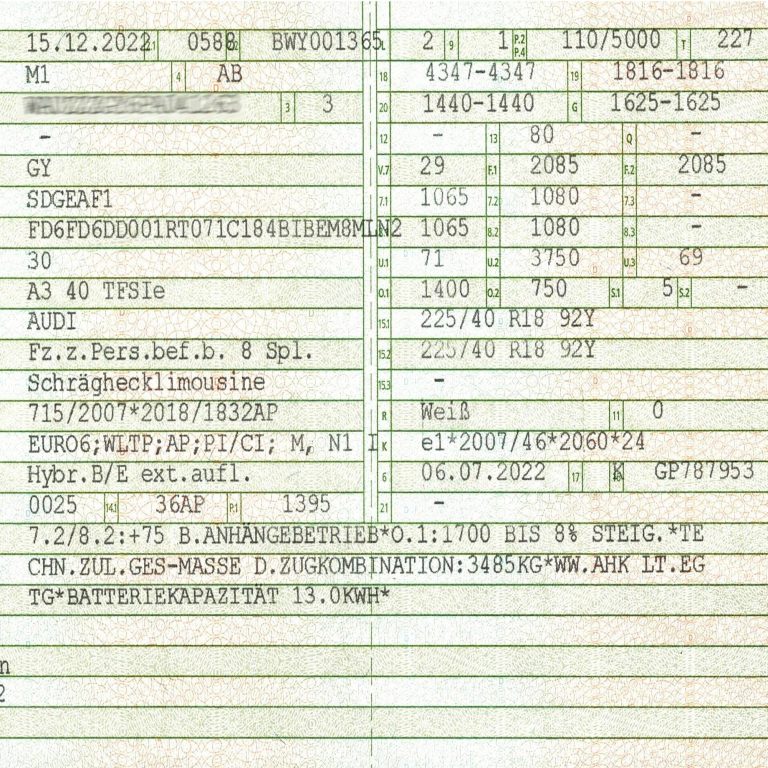 15.12.2022 2.1 0588 2.2 BWY001365 L 2 9 1 P.2 P.4 110/5000 T 227
M1 4 AB 18 4347-4347 19 1816-1816
3 3 20 1440-1440 G 1625-1625
- 12 - 13 80 Q -
GY V.7 29 F.1 2085 F.2 2085
SDGEAF1 7.1 1065 7.2 1080 7.3 -
FD6FD6DD001RT071C184BIBEM8MLN2 1065 8.2 1080 8.3 -
30 U.1 71 U.2 3750 U.3 69
A3 40 TFSIe O.1 1400 O.2 750 S.1 5 S.2 -
AUDI 15.1 225/40 R18 92Y
Fz.z.Pers.bef.b. 8 Spl. 15.2 225/40 R18 92Y
Schräghecklimousine 15.3 -
715/2007*2018/1832AP R Weiß 11 0
EURO6;WLTP;AP;PI/CI; M, N1 I K e1*2007/46*2060*24
Hybr.B/E ext.aufl. 6 06.07.2022 17 K GP787953
0025 14.1 36AP P.1 1395 21 -
7.2/8.2:+75 B.ANHÄNGEBETRIEB*O.1:1700 BIS 8% STEIG.*TE
CHN.ZUL.GES-MASSE D.ZUGKOMBINATION:3485KG*WW.AHK LT.EG
TG*BATTERIEKAPAZITÄT 13.0KWH*
n
2